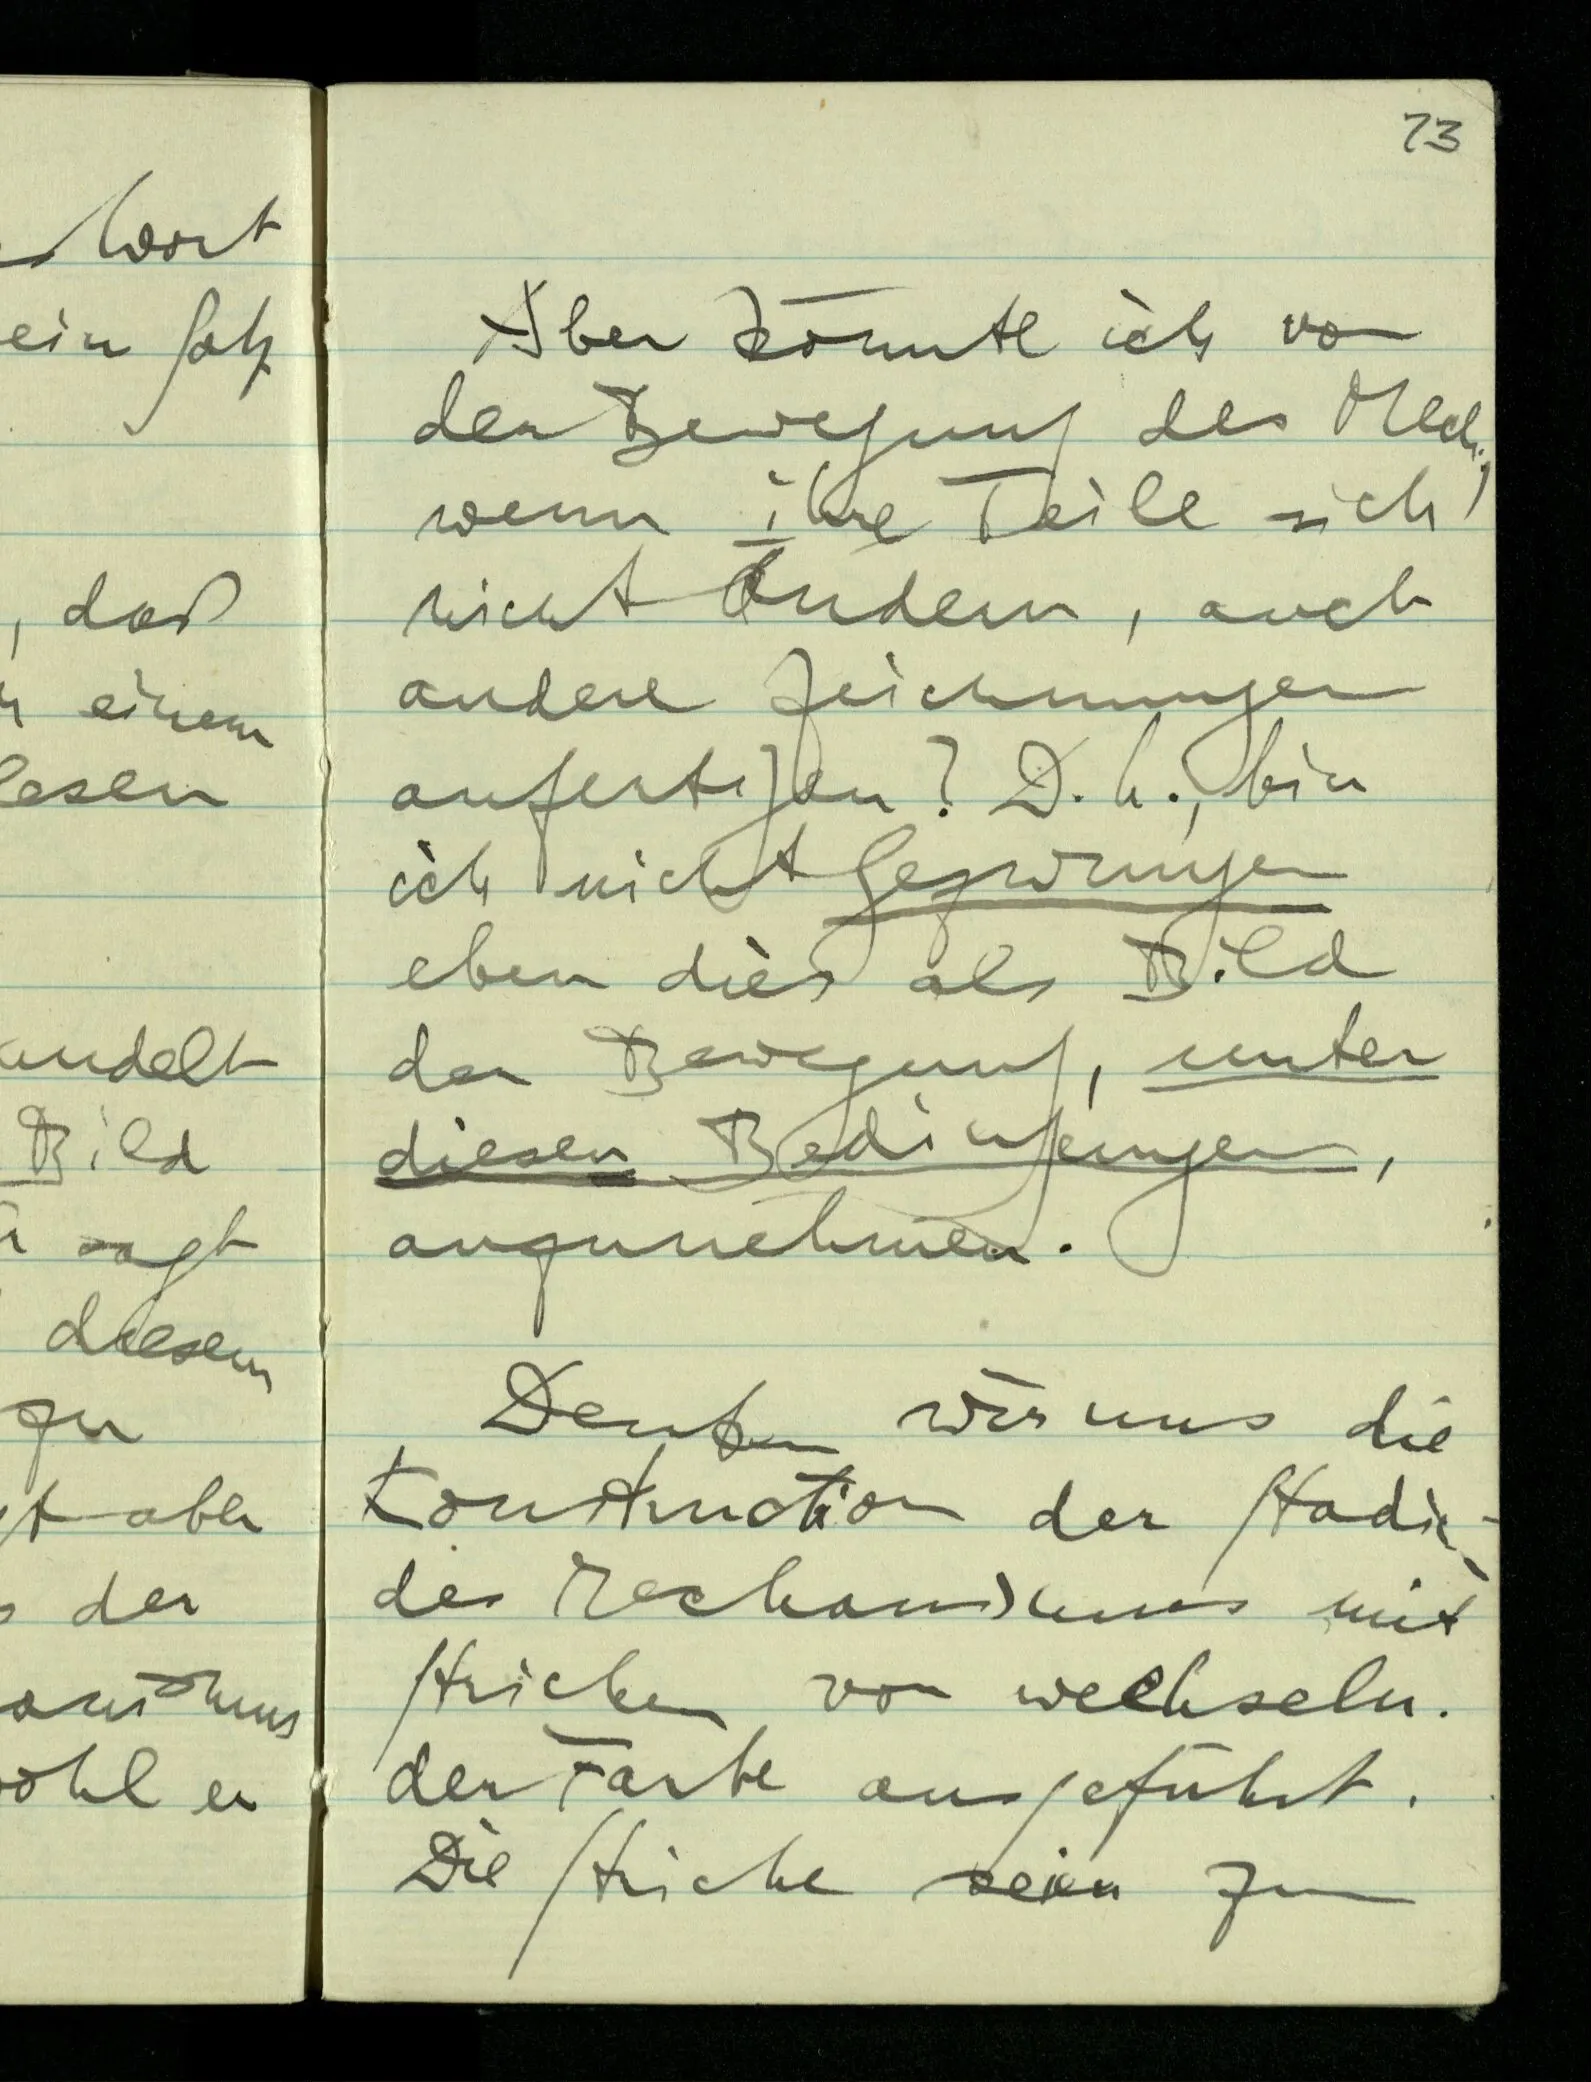 Wort
ein Satz
, daß
einem
lesen
andelt
Bild
sagt
diesem
zu
aber
der
anismus
wohl er
73
Aber könnte ich von
der Bewegung des Mech.,
wenn ihre Teile sich
nicht ändern, auch
andere Zeichnungen
anfertigen? D.h., bin
ich nicht gezwungen
eben dies als Bild
der Bewegung, unter
diesen Bedingungen,
anzunehmen.
Denken wir uns die
Konstruction der Stadien
des Mechanismus mit
Strichen von wechseln.
der Farbe ausgeführt.
Die Striche seien zum